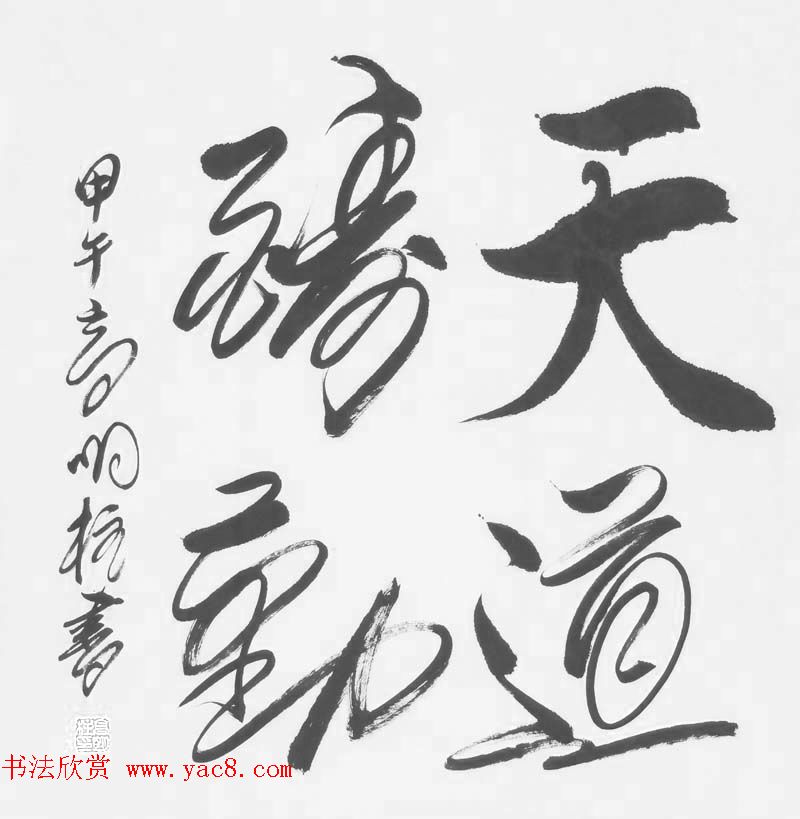 天道
酬勤
甲午高明柱書
书法欣赏 www.yac8.com